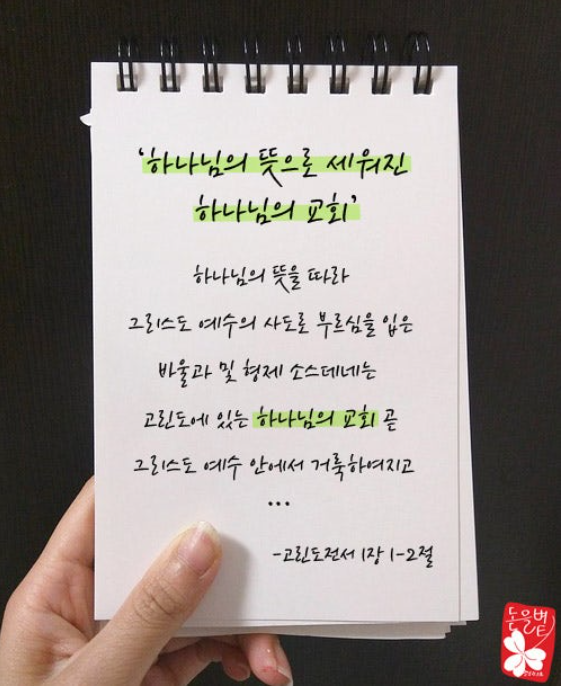 '하나님의 뜻으로 세워진
하나님의 교회'
하나님의 뜻을 따라
그리스도 예수의 사도로 부르심을 입은
바울과 및 형제 소스데네는
고린도에 있는 하나님의 교회 곧
그리스도 예수 안에서 거룩하여지고
...
-고린도전서 1장 1-2절
돋을볕